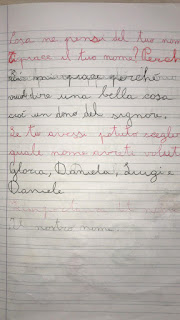 Cosa ne pensi del tuo nom
Ti piace il tuo nome? Perch
piace perché
dire una bella cosa
cioè un dono del signore.
Se tu avessi potuto sceglie
quale nome avresti volut
Gloria, Daniela, Luigi e
Daniele
Il nostro nome